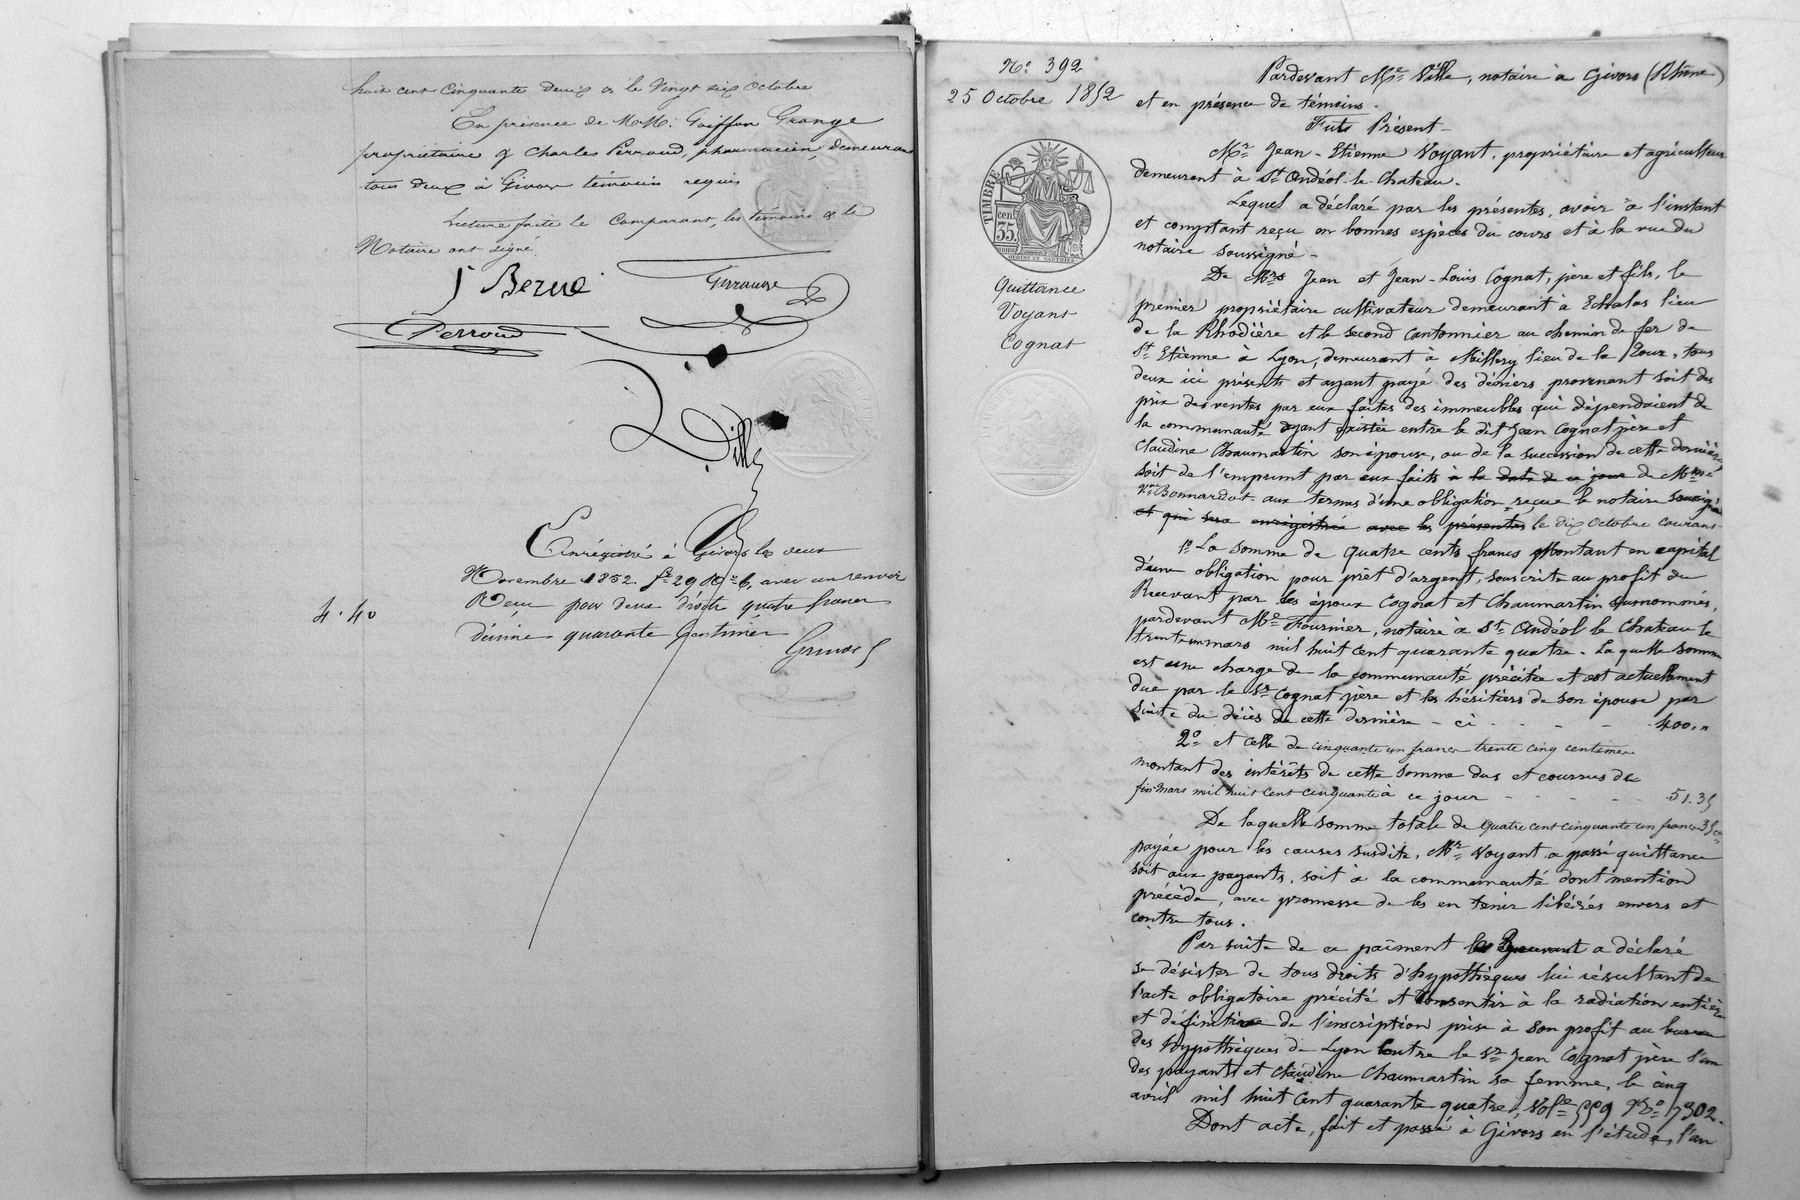 huit cent cinquante deux & le Vingt six octobre
En présence de MM. Goiffon Grange
propriétaire & Charles Perroud, pharmacien, demeurant
tous deux à Givors témoins requis
Lecture faite le Comparant, les témoins & le
Notaire ont signé
J Berne
Perroud
Ville
Enregistré à Givors le deux
Novembre 1852 fo 29 Ro c 6, avec un renvoi
Reçu pour deux droits quatre francs
décime quarante centimes
4.40
No 392
25 Octobre 1852
TIMBRE
35 cen
Quittance
Voyant
Cognat
Pardevant Me Ville, notaire à Givors (Rhône)
et en présence de témoins.
Fut Présent
Mr Jean-Etienne Voyant, propriétaire et agriculteur
demeurant à St Andéol-le-Chateau.
Lequel a déclaré par les présentes, avoir à l'instant
et comptant reçu en bonnes espèces du cours et à la vue du
notaire soussigné -
De Mrs Jean et Jean-Louis Cognat, père et fils, le
premier propriétaire cultivateur demeurant à Echalas lieu
de la Rhodière et le second Cantonnier au chemin de fer de
St Etienne à Lyon, demeurant à Millery lieu de la Tour, tous
deux ici présents et ayant payé des déniers provenant soit des
prix des ventes par eux faites des immeubles qui dépendaient de
la communauté ayant existée entre le dit Jean Cognat père et
Claudine Chaumartin son épouse, ou de la succession de cette dernière
soit de l'emprunt par eux faits à la date de ce jour de Mme
Vve Bonnardot aux termes d'une obligation reçue le notaire soussigné
et qui sera enregistrée avec les présentes le dix Octobre courant
1o La somme de quatre cents francs Montant en capital
d'une obligation pour prêt d'argent, souscrite au profit du
Recevant par les époux Cognat et Chaumartin surnommés,
pardevant Me Fournier, notaire à St Andéol le Chateau le
trente mars mil huit cent quarante quatre. La quelle somme
est une charge de la communauté précitée et est actuellement
due par le Sr Cognat père et les héritiers de son épouse par
suite du décès de cette dernière - ci - - - - 400."
2o et celle de cinquante un francs trente cinq centimes
montant des intérêts de cette somme dus et courrus de
fin Mars mil huit cent cinquante à ce jour - - - - 51.35
De laquelle somme totale de quatre cent cinquante un francs 35 c
payée pour les causes susdite, Mr Voyant a passé quittance
soit aux payants, soit à la communauté dont mention
précède, avec promesse de les en tenir libérés envers et
contre tous.
Par suite de ce païment le Recevant a déclaré
se désister de tous droits d'hypothèques lui résultant de
l'acte obligatoire précité et consentir à la radiation entière
et définitive de l'inscription prise à son profit au bureau
des hypothèques de Lyon contre le Sr Jean Cognat père l'un
des payants et Claudine Chaumartin sa femme, le cinq
avril mil huit cent quarante quatre, Vole 559 No 7302.
Dont acte, fait et passé à Givors en l'étude, l'an